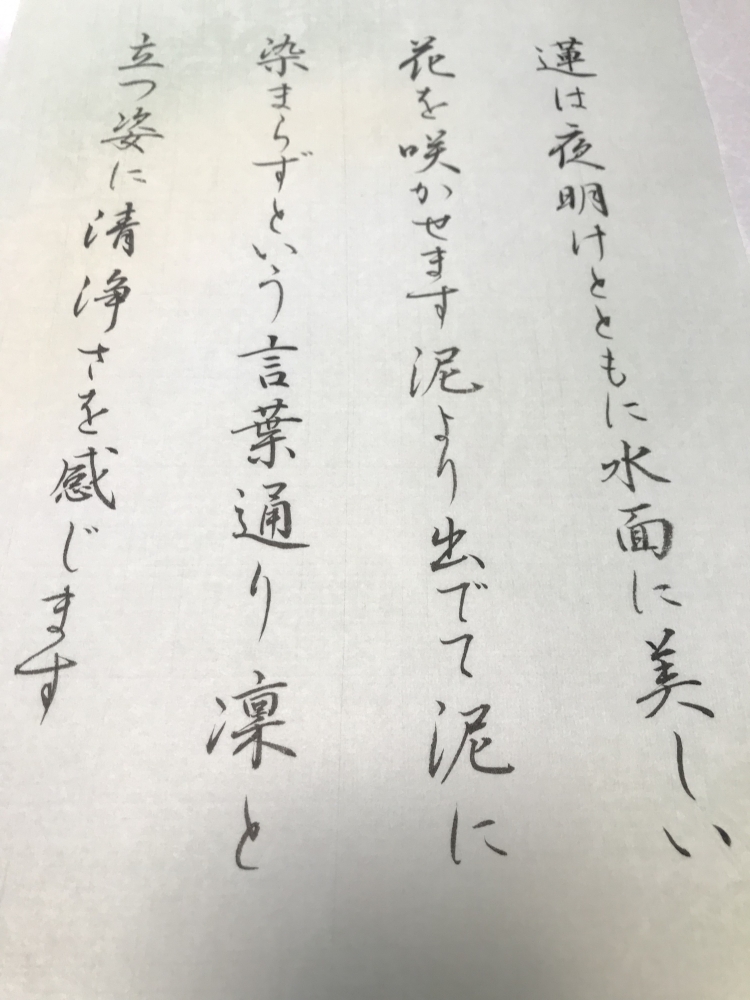 蓮は夜明けとともに水面に美しい
花を咲かせます泥より出でて泥に
染まらずという言葉通り凛と
立つ姿に清浄さを感じます